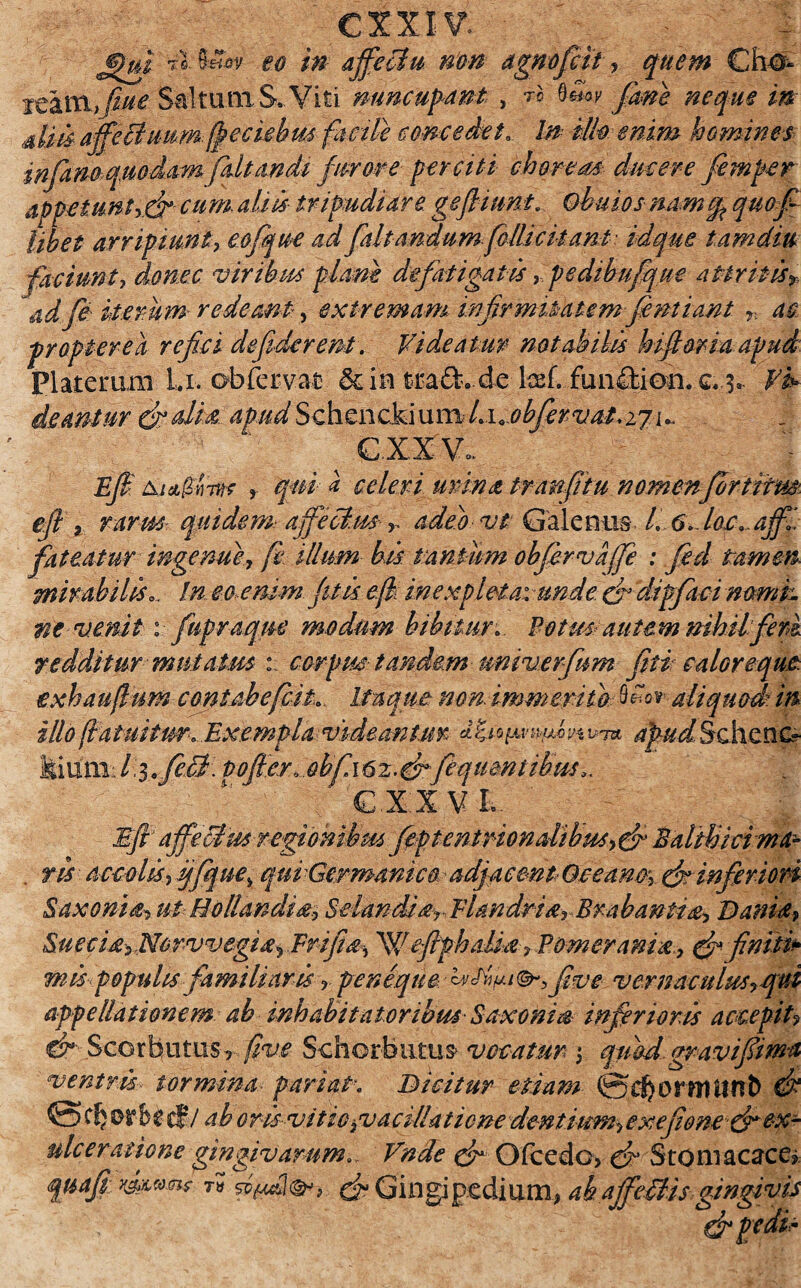 CXXIV.
Qui τὸ θεῖον eo in affectu non agnoſcit, quem Cho-
ream, ſiue Saltum S. Viti nuncupant, τὸ θεῖον ſane neque in
aliis affectuum ſpeciebus facile concedet. In illo enim homines
inſano quodam ſaltandi furore perciti choreas ducere ſemper
appetunt, & cum aliis tripudiare geſtiunt. Obuios namq; quoſ-
libet arripiunt, eoſque ad ſaltandum ſollicitant idque tamdiu
faciunt, donec viribus plane defatigatis, pedibuſque attritis,
ad ſe iterum redeant, extremam infirmitatem ſentiant, ac
propterea refici deſiderent. Videatur notabilis hiſtoria apud
Platerum l.1. obſervat & in tract. de læſ. function. c. 3. Vi-
deantur & alia apud Schenckium l.1. obſervat. 271.
CXXV.
Eſt Διαβήτης, qui à celeri urinæ tranſitu nomen ſortitus
eſt, rarus quidem affectus, adeo vt Galenus l. 6. loc. aff.
fateatur ingenue, ſe illum bis tantùm obſervâſſe: ſed tamen
mirabilis. In eo enim ſitis eſt inexpleta: unde & dipſaci nomi-
ne venit: ſupraque modum bibitur. Potus autem nihil ferè
redditur mutatus: corpus tandem univerſum ſiti caloreque
exhauſtum contabeſcit. Itaque non immerito θεῖον aliquod in
illo ſtatuitur. Exempla videantur ἀξιομνημόνευτα apud Schenc-
kium l.3. ſect. poſter. obſ. 162. & ſequentibus.
CXXVI.
Eſt affectus regionibus ſeptentrionalibus, & Balthici ma-
ris accolis, ijſque, qui Germanico adjacent Oceano, & inferiori
Saxoniæ, ut Hollandiæ, Selandiæ, Flandriæ, Brabantiæ, Daniæ,
Sueciæ, Norvvegiæ, Friſiæ, Weſtphaliæ, Pomeraniæ, & finiti-
mis populis familiaris, penéque ἐνδήμι@, ſive vernaculus, qui
appellationem ab inhabitatoribus Saxoniæ inferioris accepit,
& Scorbutus, ſive Schorbutus vocatur; quòd graviſſima
ventris tormina pariat. Dicitur etiam Schormund &
Schorbeck/ ab oris vitio, vacillatione dentium, exeſione & ex-
ulceratione gingivarum. Vnde & Oſcedo, & Stomacace,
quaſi κάκωσις τῦ στόματ@, & Gingipedium, ab affectis gingivis
& pedi-